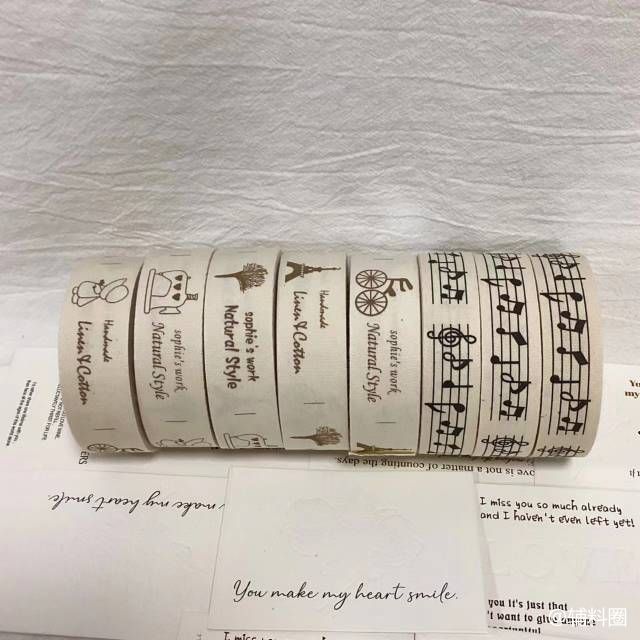 Handmade
Linen & Cotton
sophie's work
Natural Style
sophie's work
Natural Style
Handmade
Linen & Cotton
sophie's work
Natural Style
ERS
make my heart smile.
ove is not a matter of counting the days.
Yo
my
You make my heart smile.
I miss you so much already
and I haven't even left yet!
you it's just that
't want to give anyone
opportunity
I miss you so much already
@辅料圈